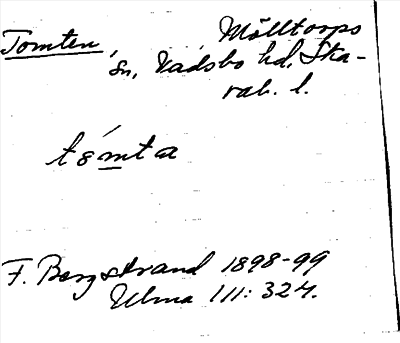 Tomten, Mölltorps
sn, Vadsbo hd, Ska-
rab. l.
tómta
F. Bergstrand 1898-99
Ulma 111:324.